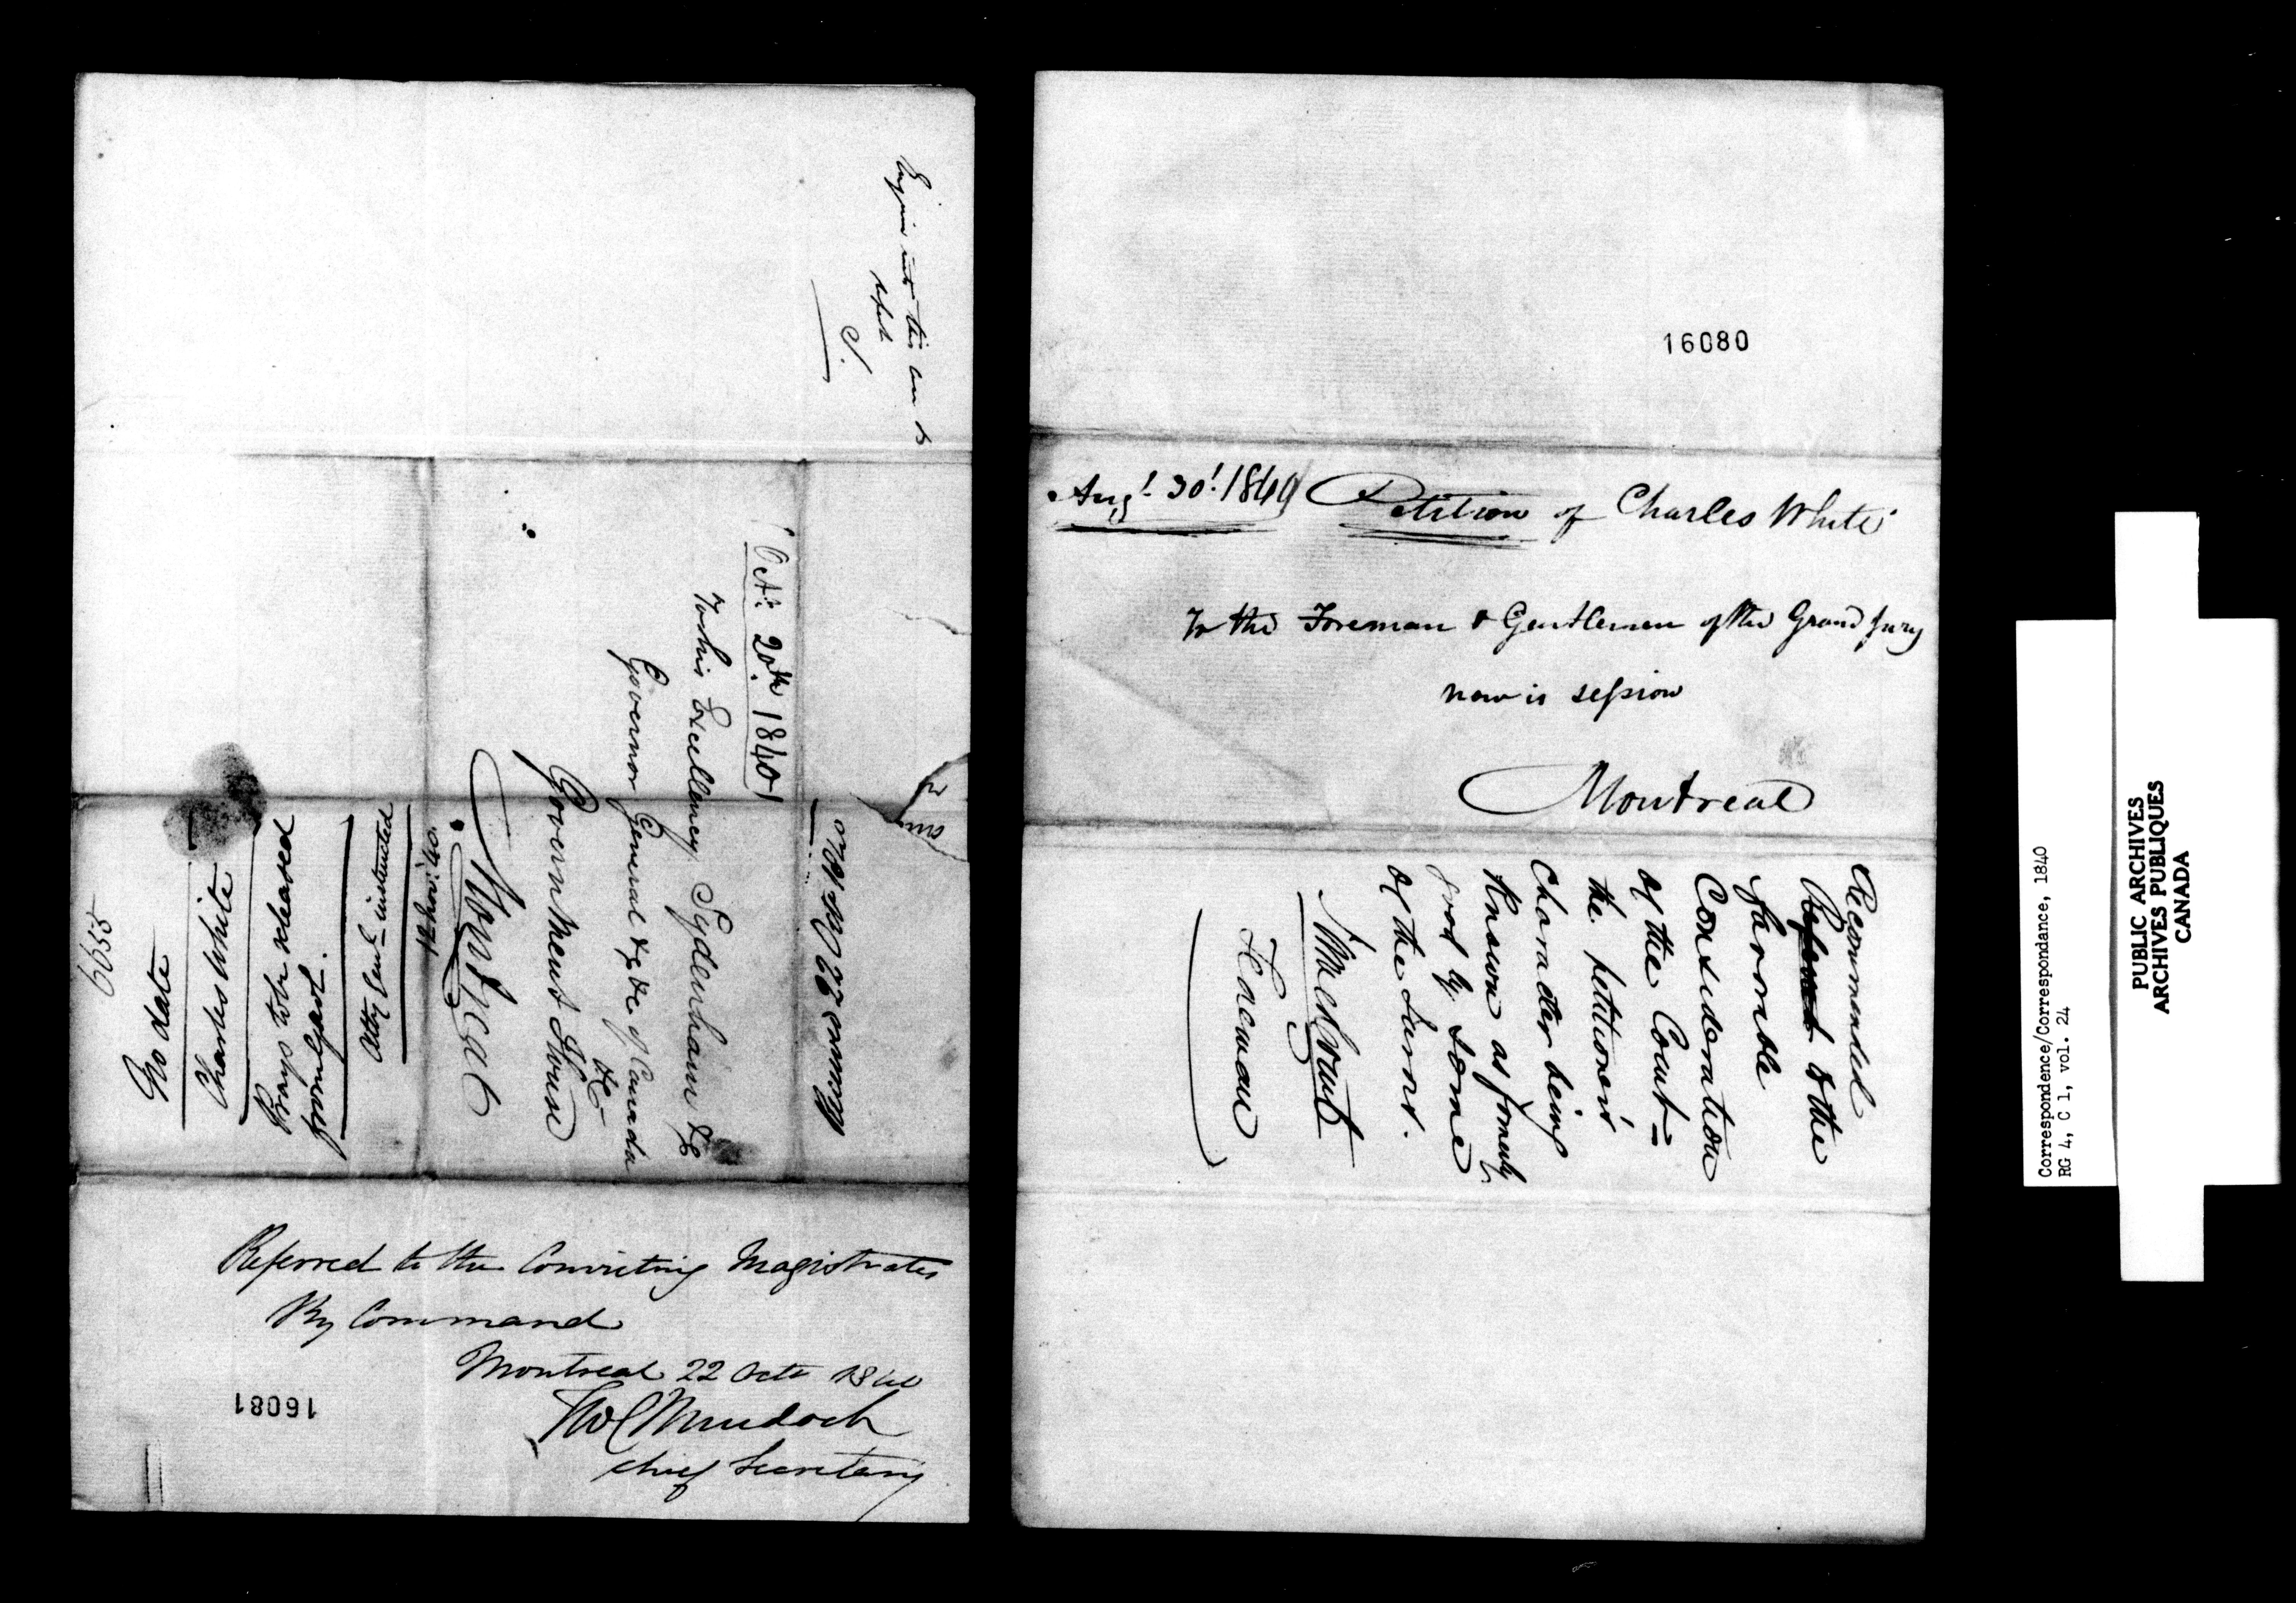 Enquire into this case &
report
S.
Octr. 20th 1840
To his Excellency Sydenham &c
Governor General &c &c of Canada
&c
Government House
Montreal
Received 22 Oct 1840
6655
No date
Charles White
Prays to be released
from Gaol.
Atty Genl instructed
12 Novr. 40.
Referred to the Convicting Magistrates
By Command
Montreal 22 Octr 1840
Thos C Murdoch
Chief Secretary
16081
16080
Augt. 30t. 1840 Petition of Charles White
To the Foreman & Gentlemen of the Grand Jury
now is session
Montreal
Recommended
Referred to the
favorable
Consideration
of the Court =
the petitioner's
Character being
known as formerly
good by some
of the Jurors.
Foreman
Correspondence/Correspondance, 1840
RG 4, C 1, vol. 24
PUBLIC ARCHIVES
ARCHIVES PUBLIQUES
CANADA